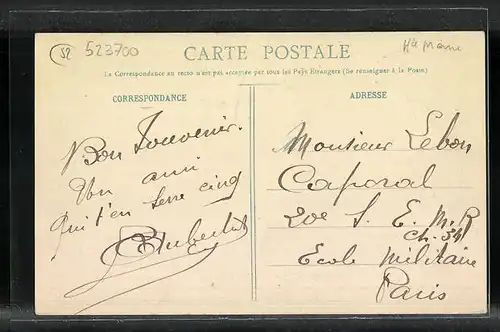 52
523700
Hte Marne
CARTE POSTALE
La Correspondance au recto n'est pas acceptée par tous les Pays Etrangers (Se renseigner à la Poste)
CORRESPONDANCE
ADRESSE
Bon Souvenir.
Ton ami
qui t'en serre cinq
Monsieur Lebon
Caporal
20e S. E. M. R
Ch. 34
Ecole Militaire
Paris